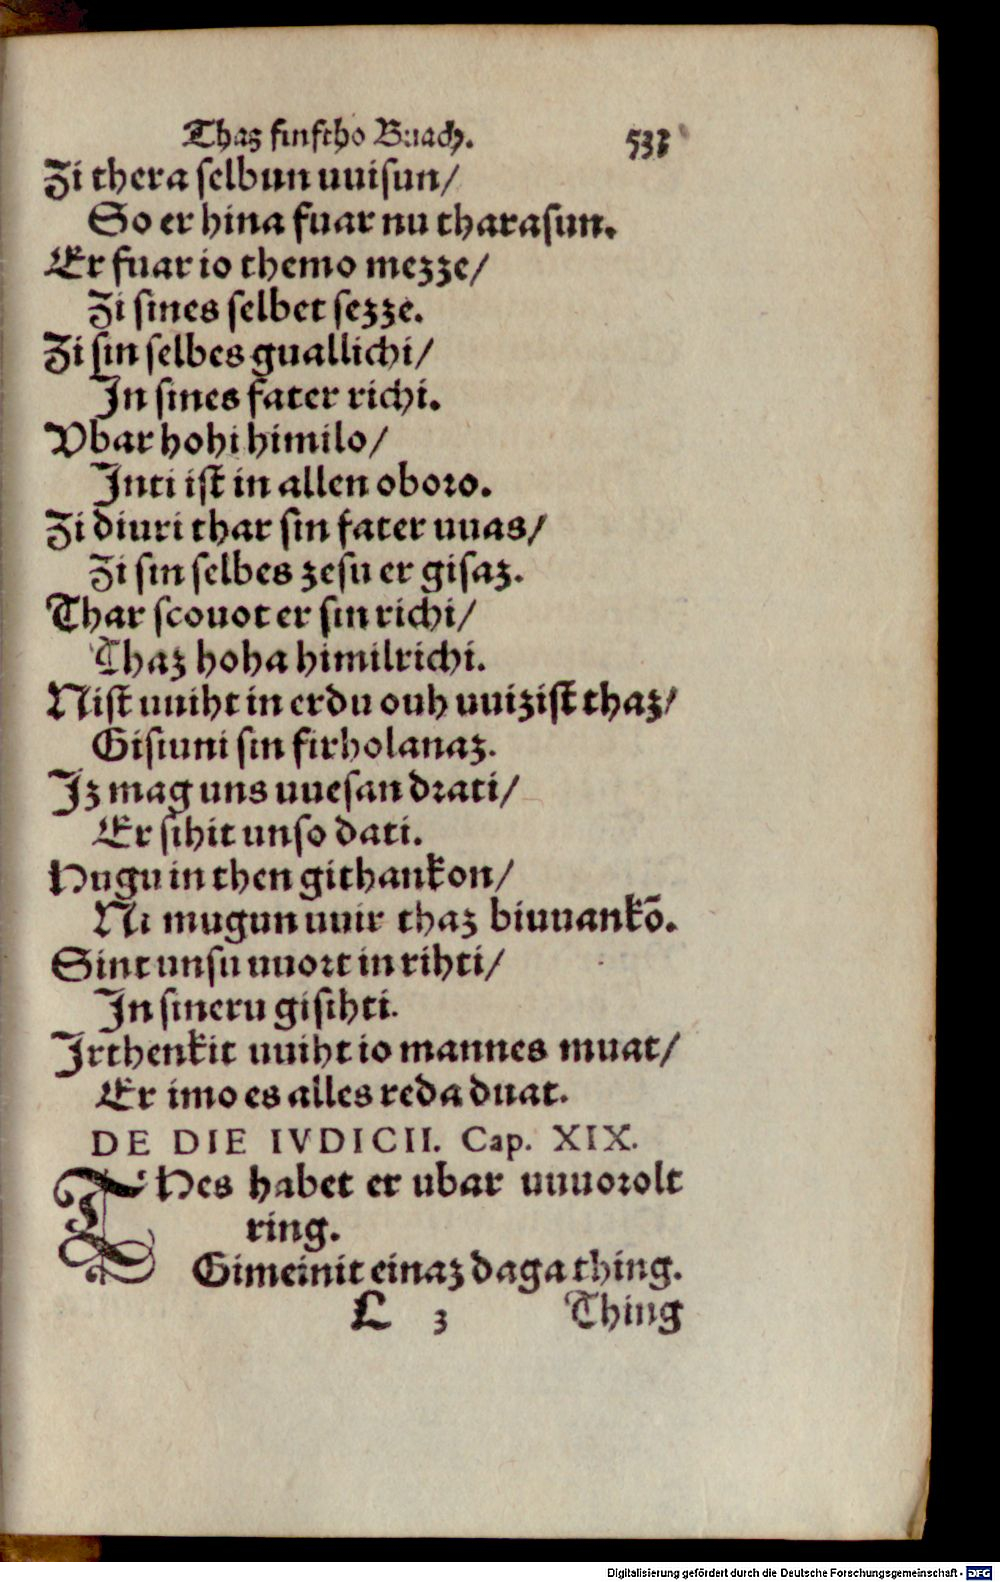 Thaz finftho Buach. 533
Zi thera ſelbun uuiſun/
So er hina fuar nu tharaſun.
Er fuar io themo mezze/
Zi ſines ſelbet ſezze.
Zi ſin ſelbes guallichi/
In ſines fater richi.
Vbar hohi himilo/
Inti iſt in allen oboꝛo.
Zi diuri thar ſin fater uuas/
Zi ſin ſelbes zeſu er giſaz.
Thar ſcouot er ſin richi/
Thaz hoha himilrichi.
Niſt uuiht in erdu ouh uuiziſt thaz/
Giſiuni ſin firholanaz.
Iz mag uns uueſan dꝛati/
Er ſihit unſo dati.
Hugu in then githankon/
Ni mugun uuir thaz biuuankō.
Sint unſu uuoꝛt in rihti/
In ſineru giſihti.
Irthenkit uuiht io mannes muat/
Er imo es alles reda duat.
DE DIE IVDICII. Cap. XIX.
THes habet er ubar uuuoꝛolt
ring.
Gimeinit einaz daga thing.
L 3 Thing
Digitalisierung gefördert durch die Deutsche Forschungsgemeinschaft - DFG